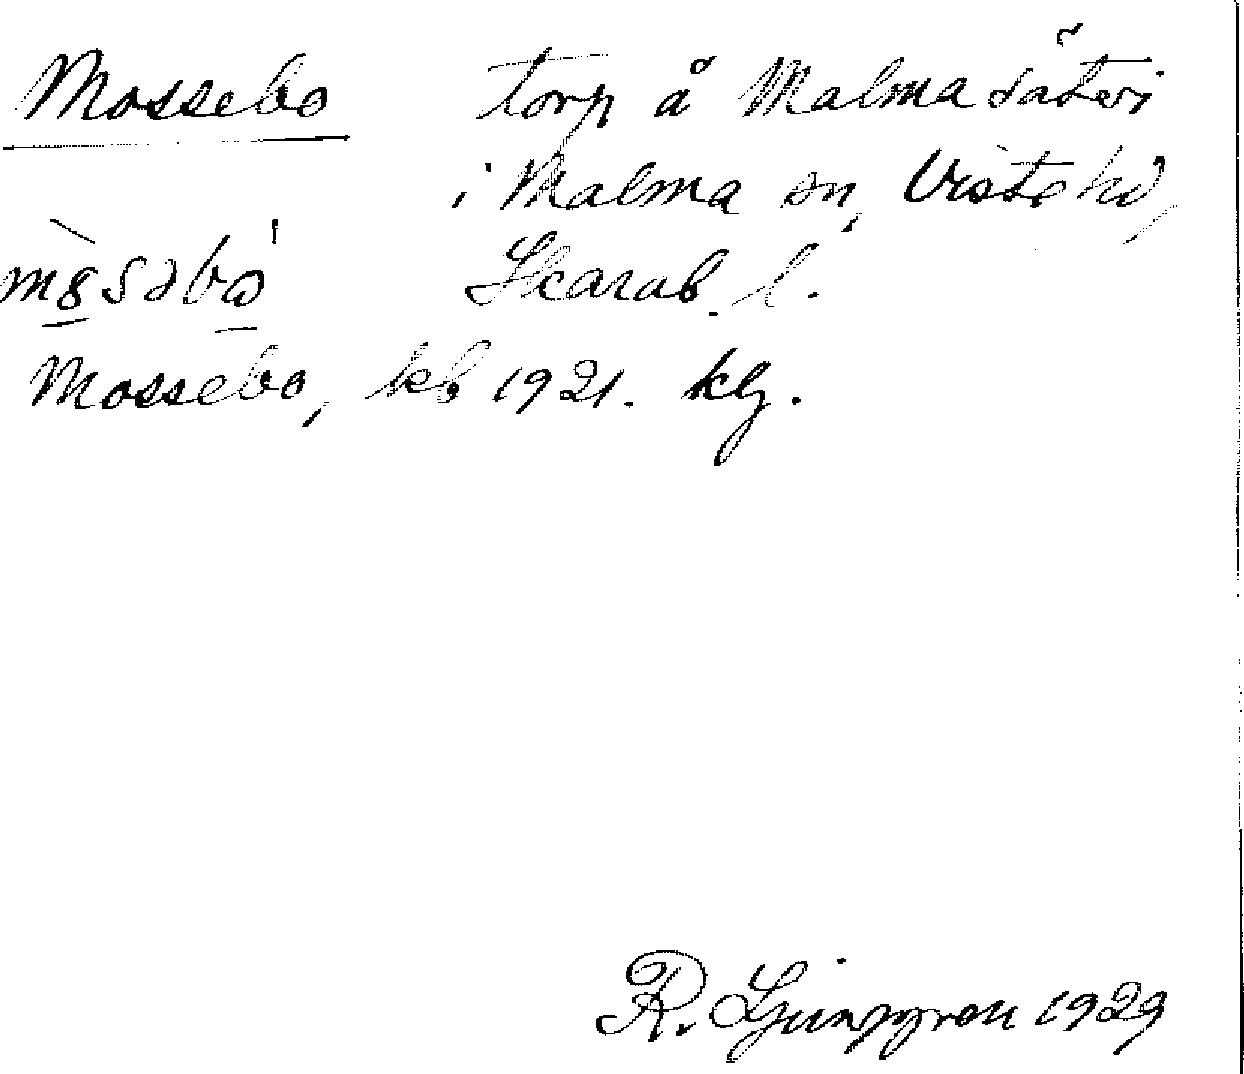 Mossebo torp å Malma säteri
i Malma sn, Viste hd,
Skarab. l.
Mossebo, kb 1921. klg.
R. Ljunggren 1929